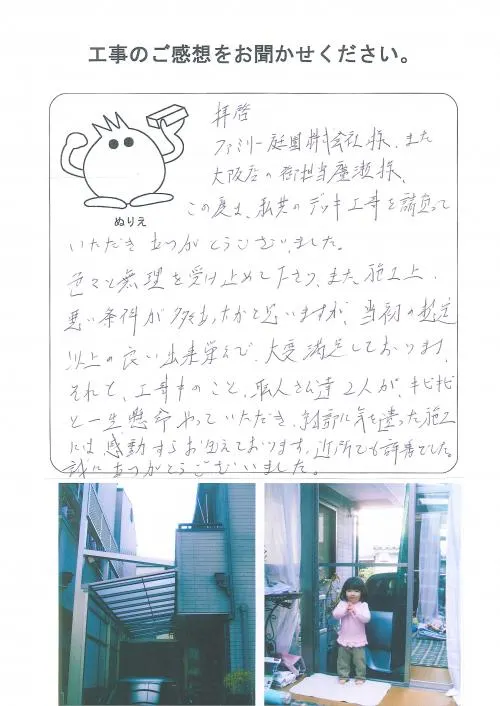 工事のご感想をお聞かせください。
拝啓
ファミリー庭園株式会社様、また
大阪店の御担当廣瀬様、
この度は、私共のデッキ工事を請負って
ぬりえ
いただきありがとうございました。
色々と無理を受け止めて下さり、また、施工上、
悪い条件が多かったかと思いますが、当初の想定
以上の良い出来栄えで、大変満足しております。
それと、工事中のこと、職人さん達2人が、キビキビ
と一生懸命やっていただき、細部に気を遣った施工
には感動すらおぼえております。近所でも評番でした。
誠にありがとうございました。